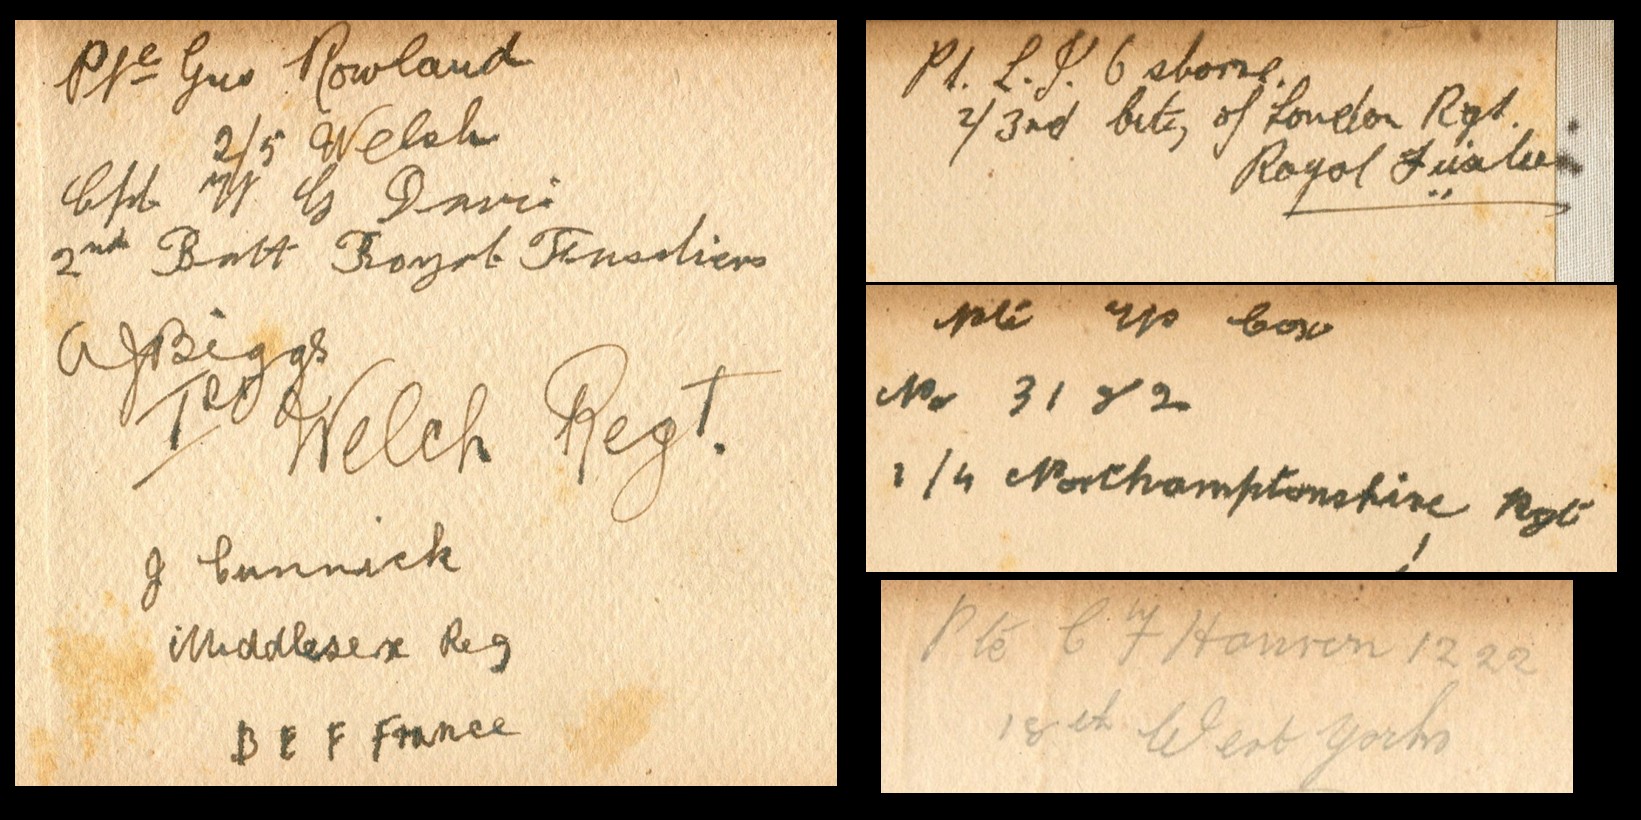 Pte Gus Rowland
2/5 Welsh
Cpl W G Davis
2nd Batt Royal Fusaliers
A J Biggs
1st Welch Regt.
J Cunnick
Middlesex Reg
B E F France
Pt. L. J. Osborne.
2/3rd bttn of London Rgt.
Royal
Pte W Cox
No 3182
1/4 Northamptonshire Rgt
Pte C F 1222
18th West Yorks